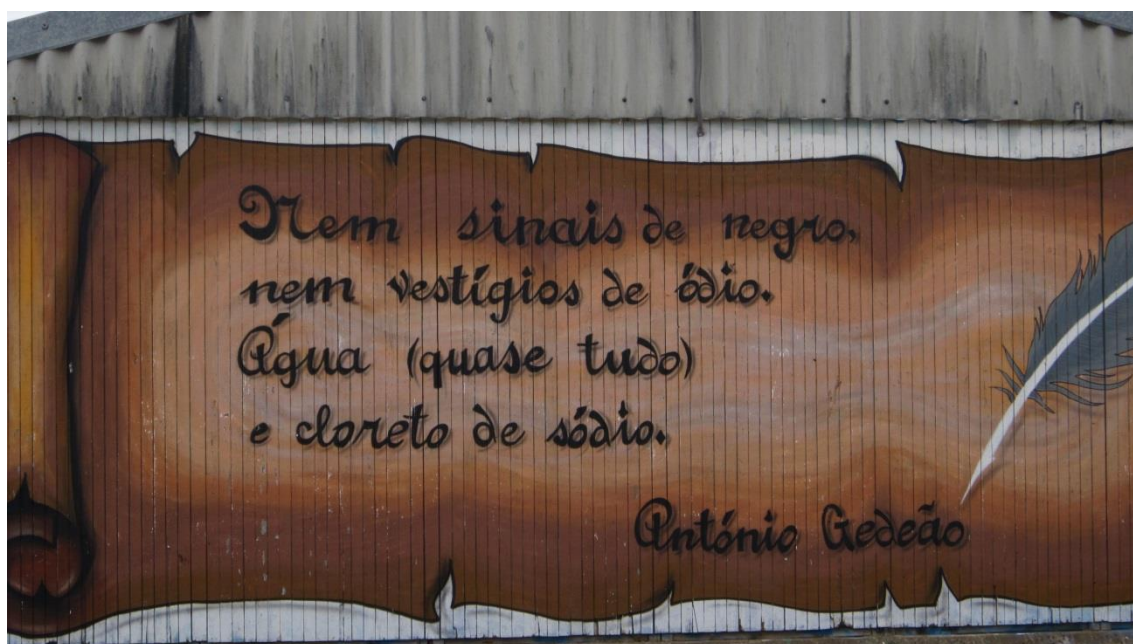 Nem sinais de negro,
nem vestígios de ódio.
Água (quase tudo)
e cloreto de sódio.
António Gedeão